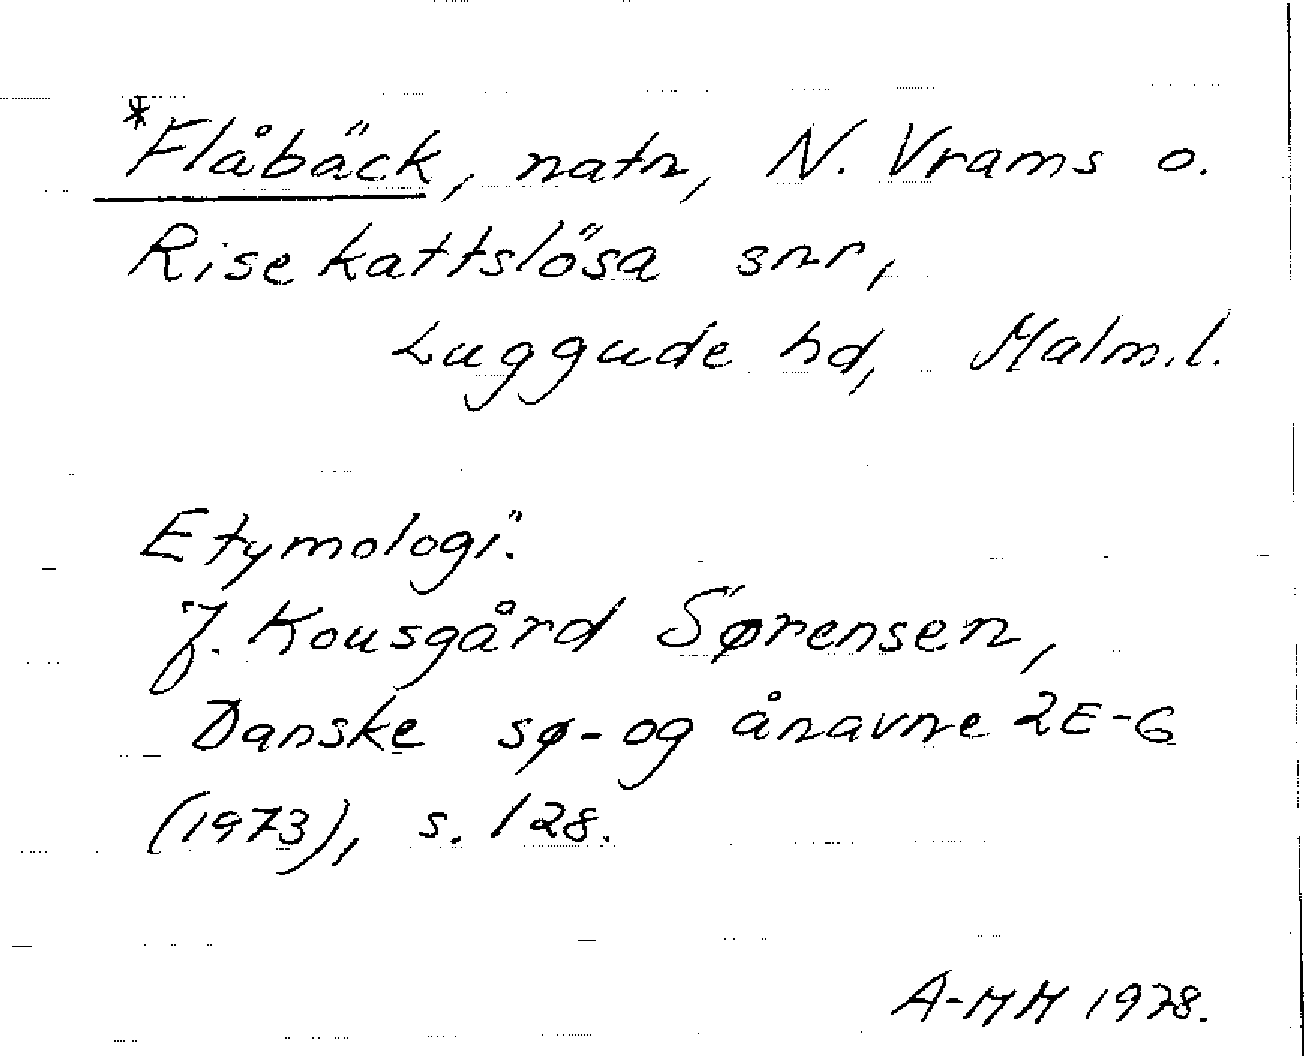 *Flåbäck, natn, N. Vrams o.
Risekattslösa snr,
Luggude hd, Malm.l.
Etymologi:
J. Kousgård Sørensen,
Danske sø- og ånavne 2E-G
(1973), s. 128.
A-MH 1978.